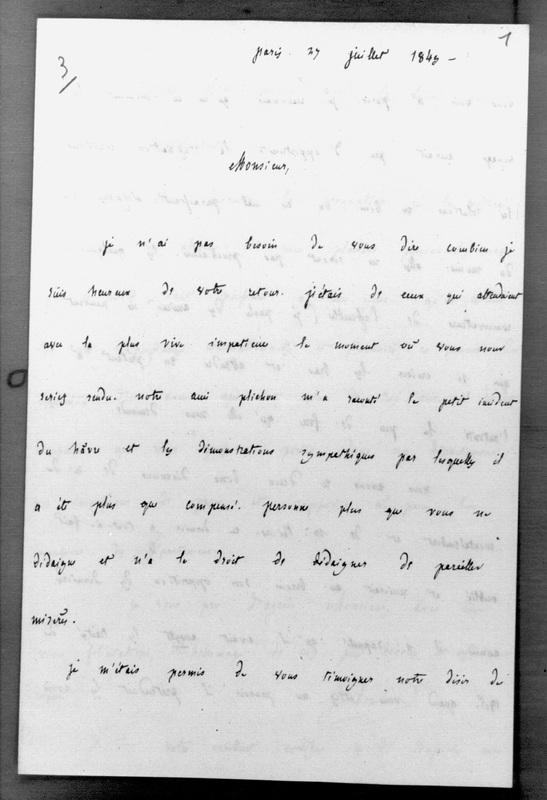 1
3
Paris. 27 juillet 1849 –
Monsieur,
je n'ai pas besoin de vous dire combien je
suis heureux de votre retour. j'étais de ceux qui attendaient
avec la plus vive impatience le moment où vous nous
seriez rendu. notre ami plichon m'a raconté le petit incident
du hâvre et les démonstrations sympathiques par lesquelles il
a été plus que compensé. personne plus que vous ne
dédaigne et n'a le droit de dédaigner de pareilles
misères.
je m'étais permis de vous témoigner notre désir de